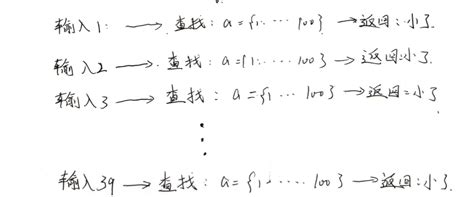 输入1: ——→ 查找: a={1.....100} →返回:小了.
输入2 ——→ 查找: a={1.....100} → 返回:小了.
输入3 ——→ 查找: a={1.....100} →返回:小了
输入39 ——→ 查找: a={1......100} →返回:小了.